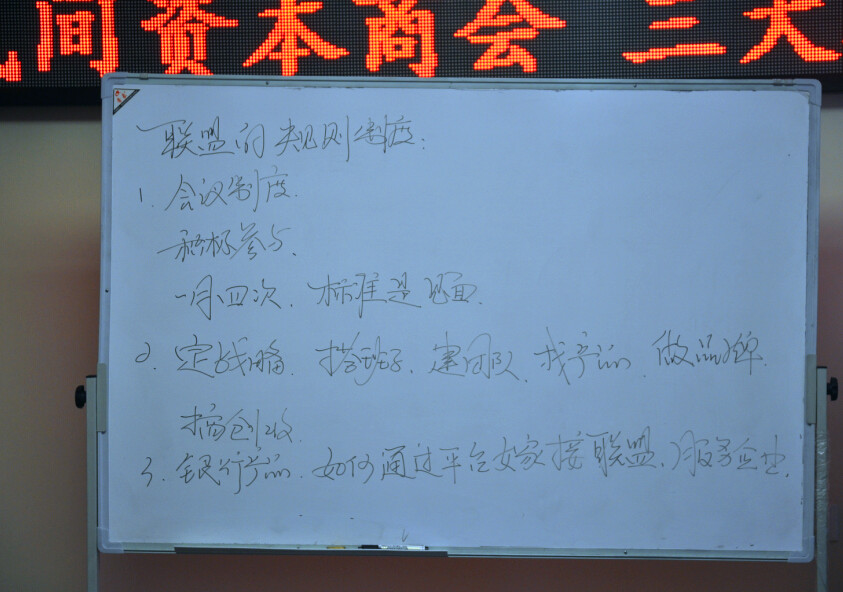 间资本商会 三大
联盟的规则制度：
1. 会议制度.
积极参与.
一月四次. 标准是见面.
2. 定战略. 搭班子. 建团队. 找产品. 做品牌.
搞创收
3. 银行产品. 如何通过平台 对接联盟、服务企业.